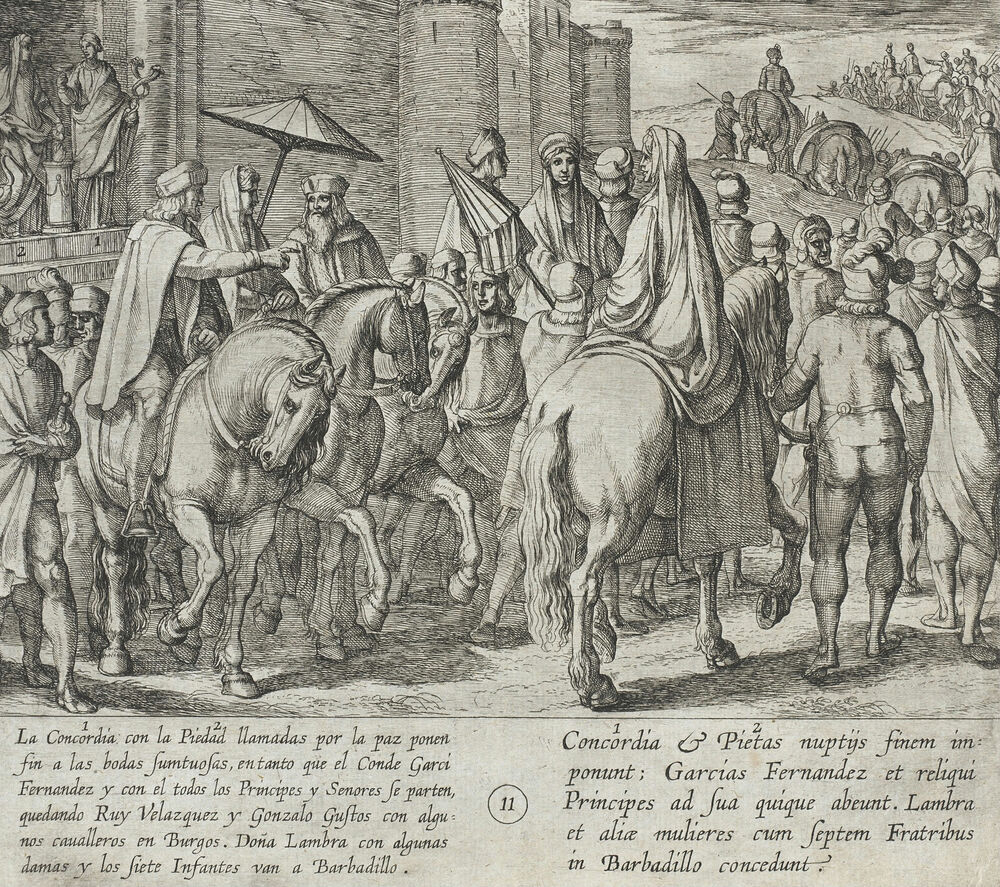 2 1
1 2
La Concordia con la Piedad llamadas por la paz ponen
fin a las bodas ſumtuoſas, en tanto que el Conde Garci
Fernandez y con el todos los Principes y Senores ſe parten,
quedando Ruy Velazquez y Gonzalo Guſtos con algu:
nos caualleros en Burgos. Doña Lambra con algunas
damas y los ſiete Infantes van a Barbadillo.
11
1 2
Concordia & Pietas nuptijs finem im:
ponunt; Garcias Fernandez et reliqui
Principes ad ſua quique abeunt. Lambra
et aliæ mulieres cum ſeptem Fratribus
in Barbadillo concedunt.